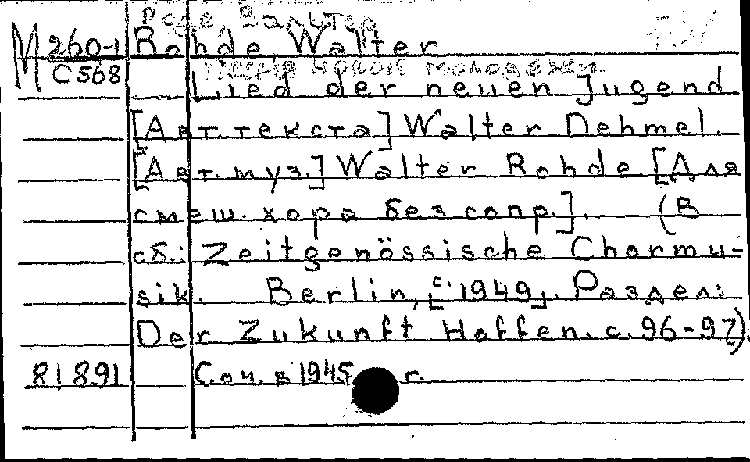 Роде Вальтер
М 260-1 Rohde, Walter
С 568 Песня новой молодежи.
Lied der neuen Jugend
[Авт. текста] Walter Dehmel.
[Авт. муз.] Walter Rohde [Для
смеш. хора без сопр.]. (В
сб.: Zeitgenössische Chormu-
sik. Berlin, [1949]. Раздел:
Der Zukunft Hoffen. с. 96-97)
81891 Соч. в 1945 г.